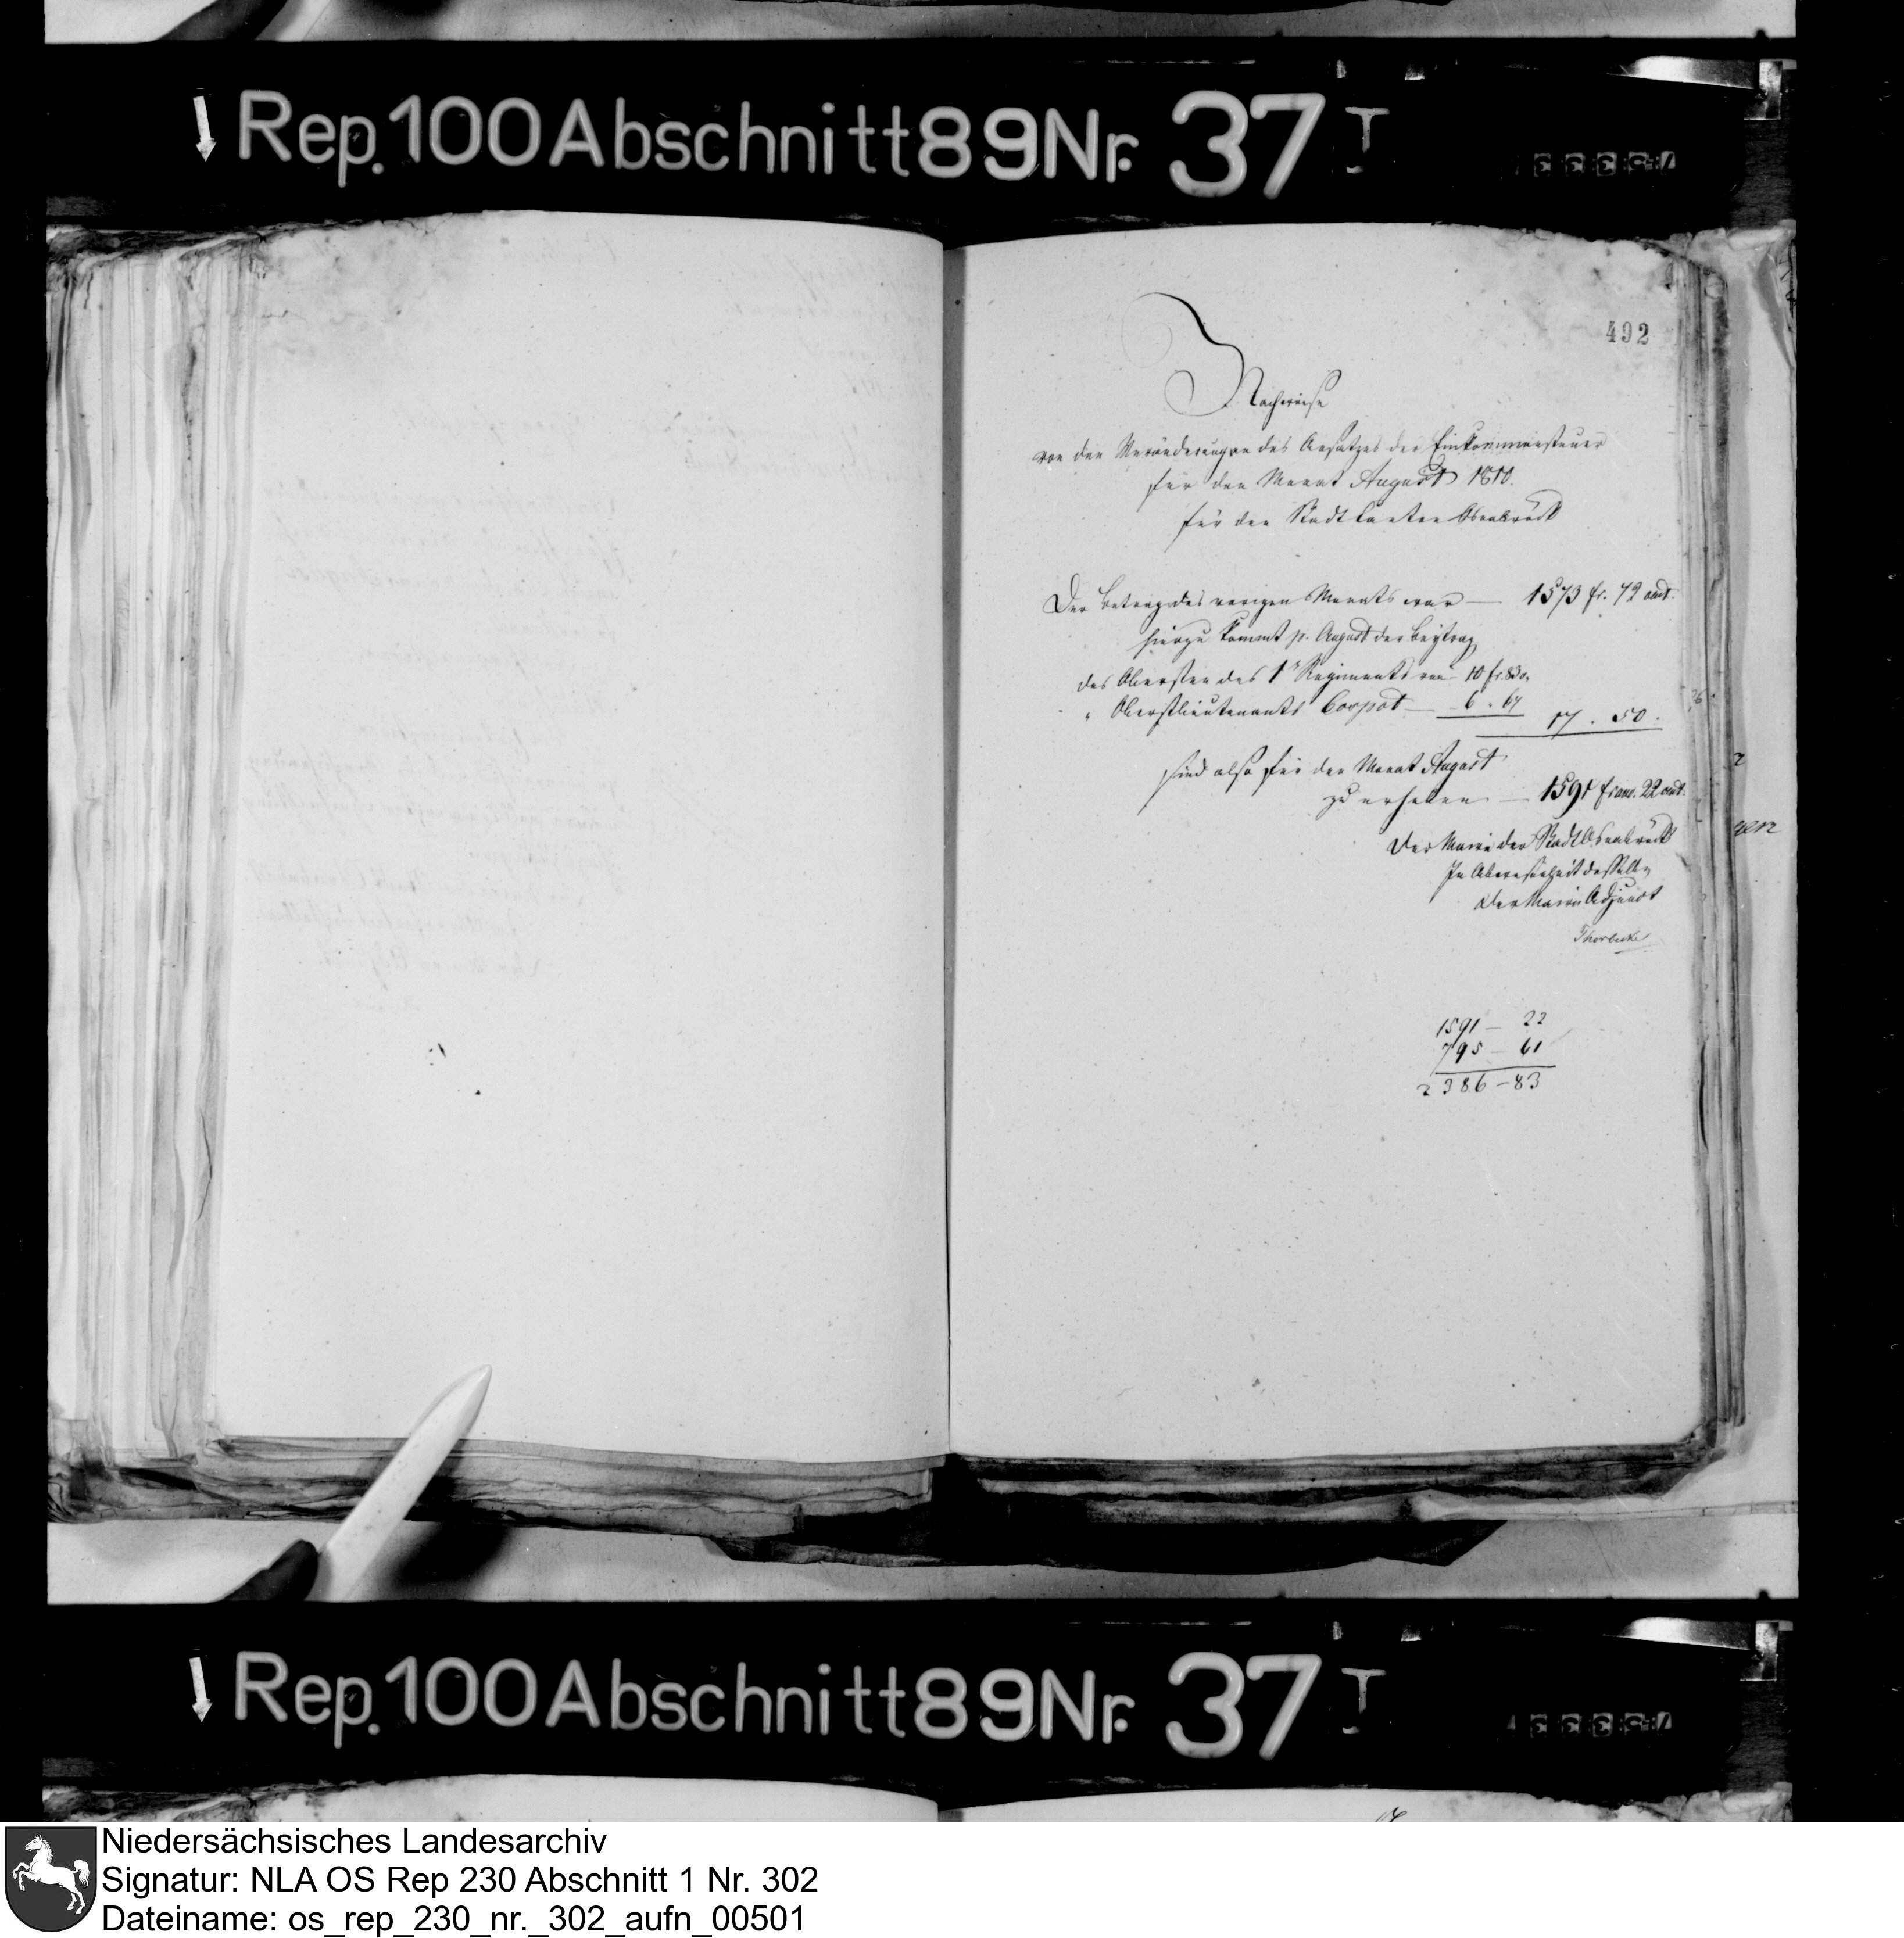 Rep. 100 Abschnitt 89 Nr. 37 I
492
Nachweise
von den Veränderungen des Ansatzes der Einkommensteuer
für den Monat August 1810.
für den Stadt Canton Osnabrück
Der Betrag des vorigen Monats war — 1573 fr. 72 cent.
hierzu kommt p. August der Beytrag
des Obersten des 1r Regiments von — 10 fr. 83 c.
" Oberstlieutenants — 6 . 67
17 . 50 .
sind also für den Monat August
zu erheben — 1591 franc. 22 cent.
Der Maire der Stadt Osnabrück
In Abwesenheit desselben
der Maire Adjunct
Thorbecke
1591 — 22
795 — 61
2386 — 83
Rep. 100 Abschnitt 89 Nr. 37 I
Niedersächsisches Landesarchiv
Signatur: NLA OS Rep 230 Abschnitt 1 Nr. 302
Dateiname: os_rep_230_nr._302_aufn_00501